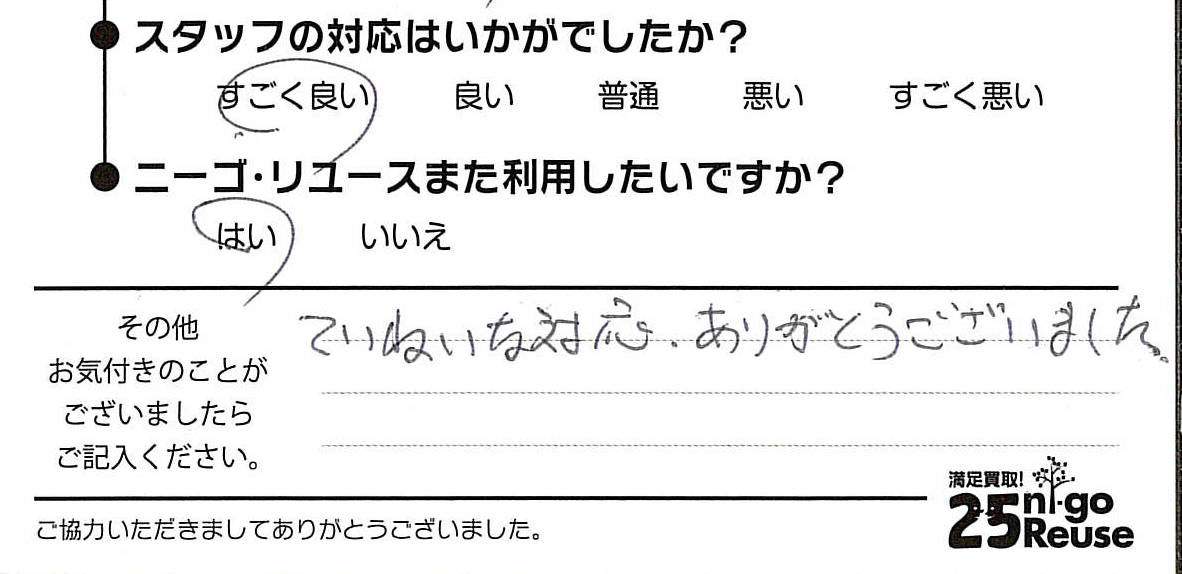 スタッフの対応はいかがでしたか？
すごく良い 良い 普通 悪い すごく悪い
ニーゴ・リユースまた利用したいですか？
はい いいえ
その他
お気付きのことが
ございましたら
ご記入ください。
ていねいな対応、ありがとうございました。
満足買取!
25 ni-go
Reuse
ご協力いただきましてありがとうございました。